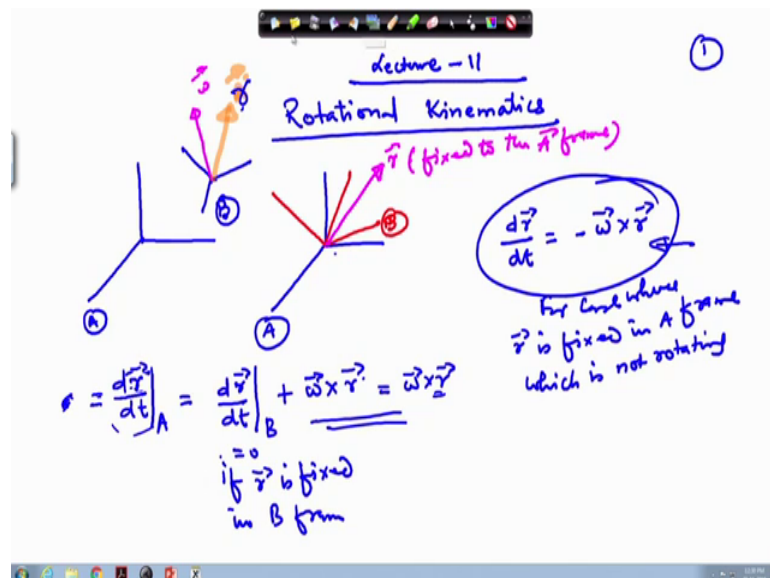 ①
Lecture - 11
Rotational Kinematics
B
A
r⃗ (fixed to the A⃗ frame)
B
A
dr⃗/dt = - ω⃗ × r⃗
For case where
r⃗ is fixed in A frame
which is not rotating
= dr⃗/dt|A = dr⃗/dt|B + ω⃗ × r⃗ = ω⃗ × r⃗
= 0
if r⃗ is fixed
in B fram